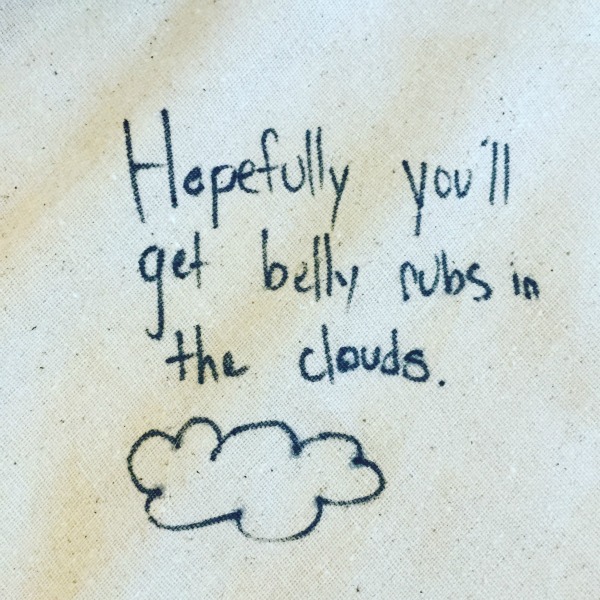 Hopefully you'll
get belly rubs in
the clouds.